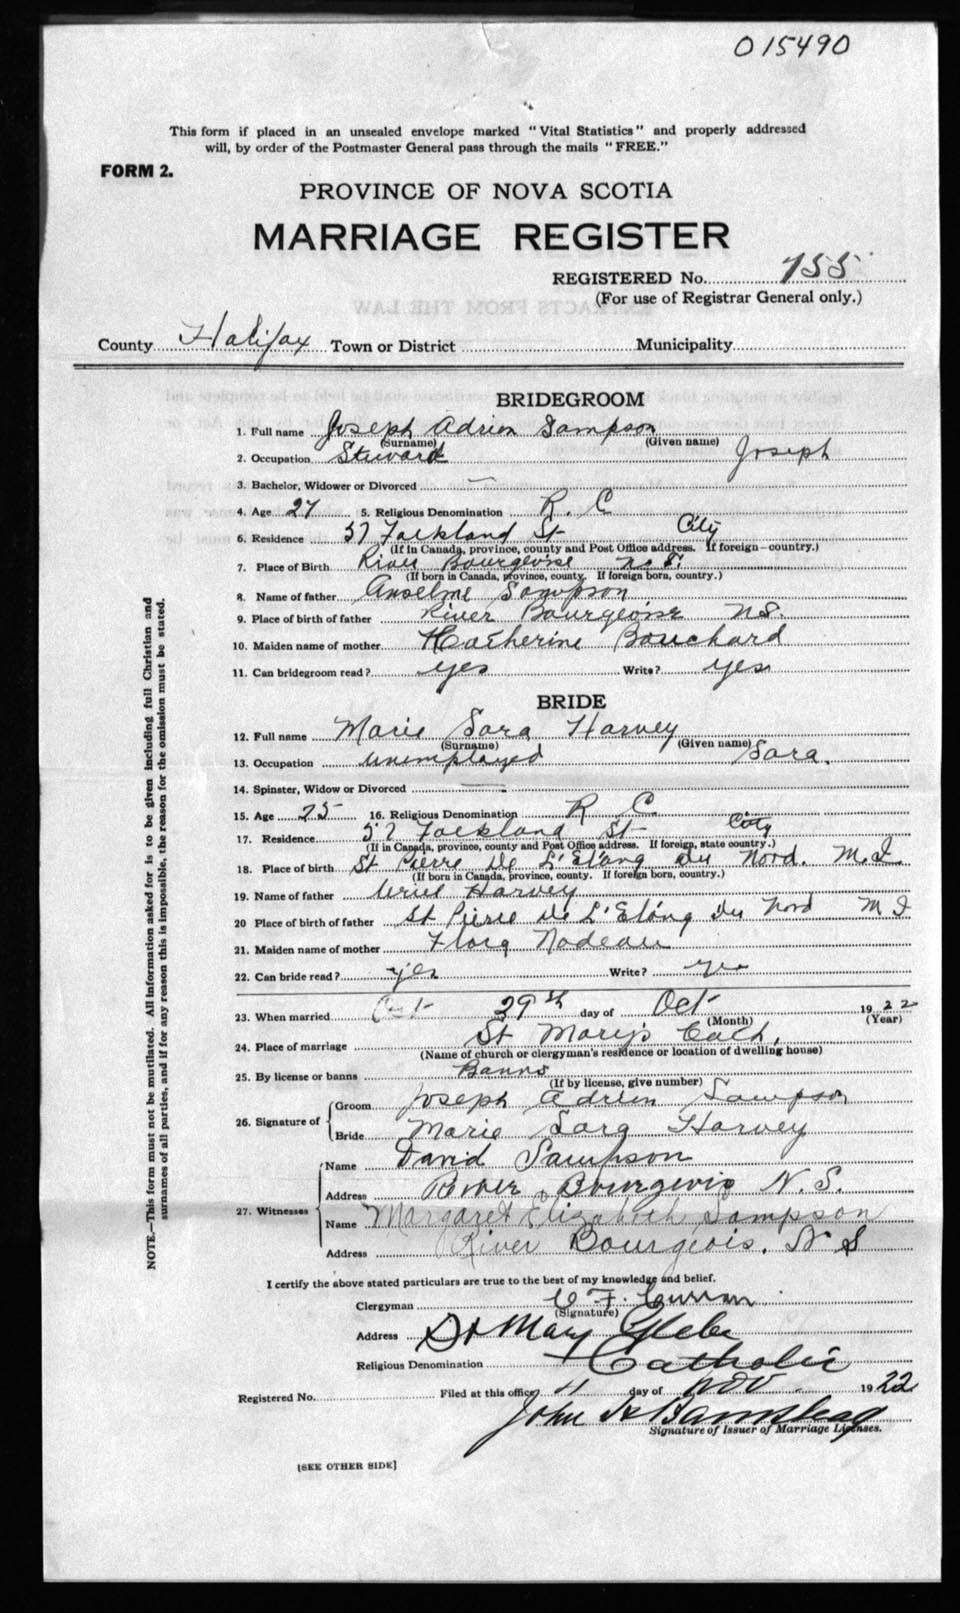 015490
This form if placed in an unsealed envelope marked "Vital Statistics" and properly addressed
will, by order of the Postmaster General pass through the mails "FREE."
FORM 2.
PROVINCE OF NOVA SCOTIA
MARRIAGE REGISTER
REGISTERED No. 755
(For use of Registrar General only.)
County Halifax Town or District Municipality
BRIDEGROOM
1. Full name Joseph Adrien Sampson
(Surname) (Given name)
2. Occupation Steward Joseph
3. Bachelor, Widower or Divorced —
4. Age 27 5. Religious Denomination R. C
6. Residence 57 Falkland St City
(If in Canada, province, county and Post Office address. If foreign—country.)
7. Place of Birth River Bourgeoise N.S.
(If born in Canada, province, county. If foreign born, country.)
8. Name of father Anselme Sampson
9. Place of birth of father River Bourgeoise N.S.
10. Maiden name of mother Katherine Bouchard
11. Can bridegroom read? yes Write? yes
BRIDE
12. Full name Marie Sara Harvey
(Surname) (Given name)
13. Occupation Unemployed Sara.
14. Spinster, Widow or Divorced —
15. Age 25 16. Religious Denomination R C.
17. Residence 57 Falkland St City
(If in Canada, province, county and Post Office address. If foreign, state country.)
18. Place of birth St Pierre De L'Etang Du Nord. M.I.
(If born in Canada, province, county. If foreign born, country.)
19. Name of father Uriel Harvey
20 Place of birth of father St Pierre De L'Etang Du Nord M I
21. Maiden name of mother Flora Nadeau
22. Can bride read? yes Write? yes
23. When married Oct 29th day of Oct 1922
(Month) (Year)
24. Place of marriage St Mary's Cath.
(Name of church or clergyman's residence or location of dwelling house)
25. By license or banns Banns
(If by license, give number)
26. Signature of Groom Joseph Adrien Sampson
Bride Marie Sara Harvey
27. Witnesses Name David Sampson
Address River Bourgeois N. S.
Name Margaret Elizabeth Sampson
Address River Bourgeois. N S
I certify the above stated particulars are true to the best of my knowledge and belief.
Clergyman C F. Curran
(Signature)
Address St Mary Glebe
Religious Denomination Catholic
Registered No. Filed at this office 4 day of Nov. 1922
John
Signature of Issuer of Marriage Licenses.
[SEE OTHER SIDE]
NOTE.—This form must not be mutilated. All information asked for is to be given including full Christian and
surnames of all parties, and if for any reason this is impossible, the reason for the omission must be stated.